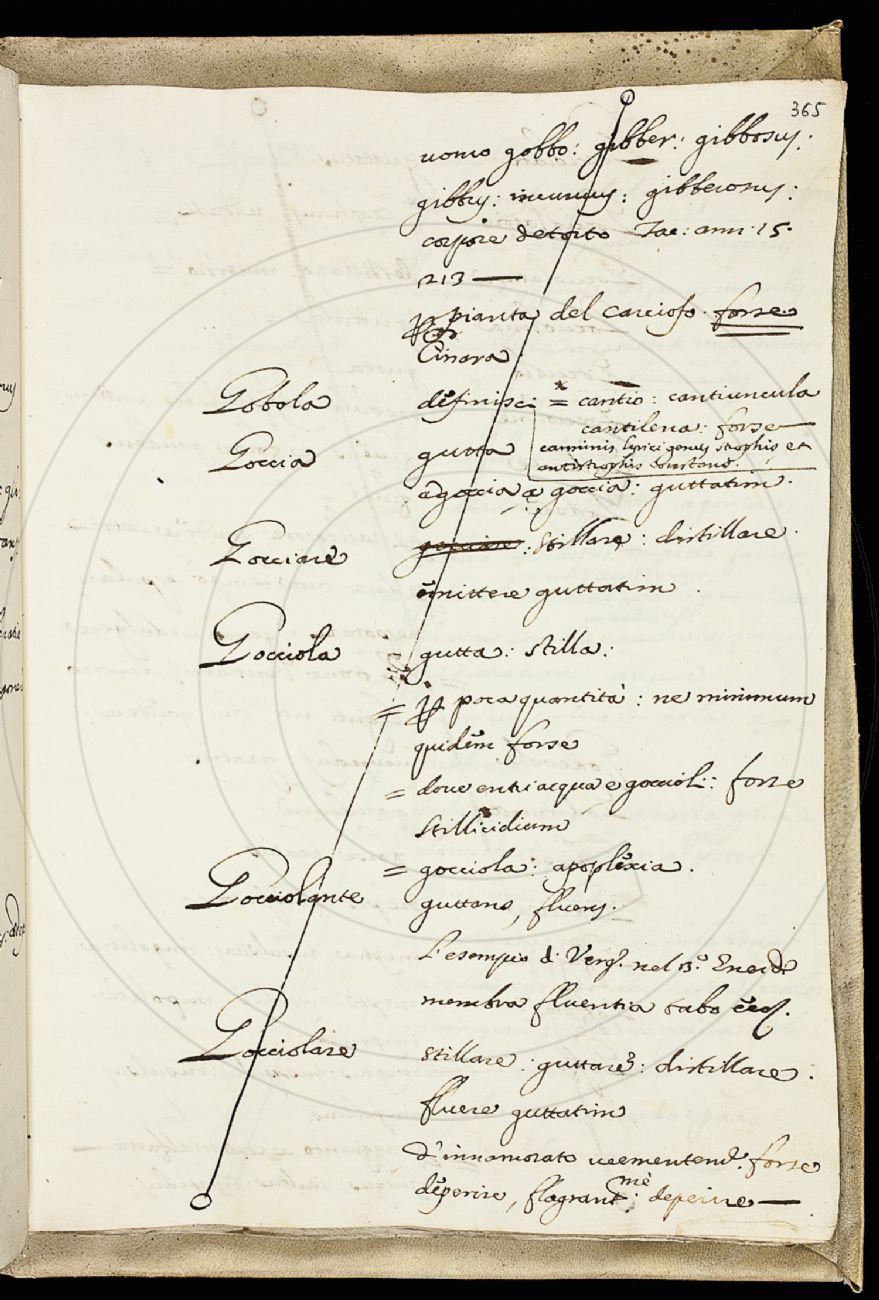 365
uomo gobbo: gibber: gibbosus:
gibbus: incurvus: gibberosus:
corpore detorto Tac: ann: 15.
213 —
pianta del carciofo. forse
Cinara
Gobola definisc: = cantio: cantiuncula
cantilena: forse
carminis lyrici genus strophis et
antistrophis constans.
Goccia gutta
a goccia a goccia: guttatim.
Gocciare : stillare: distillare.
emittere guttatim.
Gocciola gutta: stilla:
= poca quantità: ne minimum
quidem forse
= dove entri acqua e goccioli: forse
stillicidium
= gocciola: apoplexia.
Gocciolante guttans, fluens.
L'esempio di Verg. nel 3.º Eneid:
membra fluentia tabo
Gocciolare stillare: guttare: distillare.
fluere guttatim
d'innamorato veementem. forse
deperire, flagrant.mè: deperire —